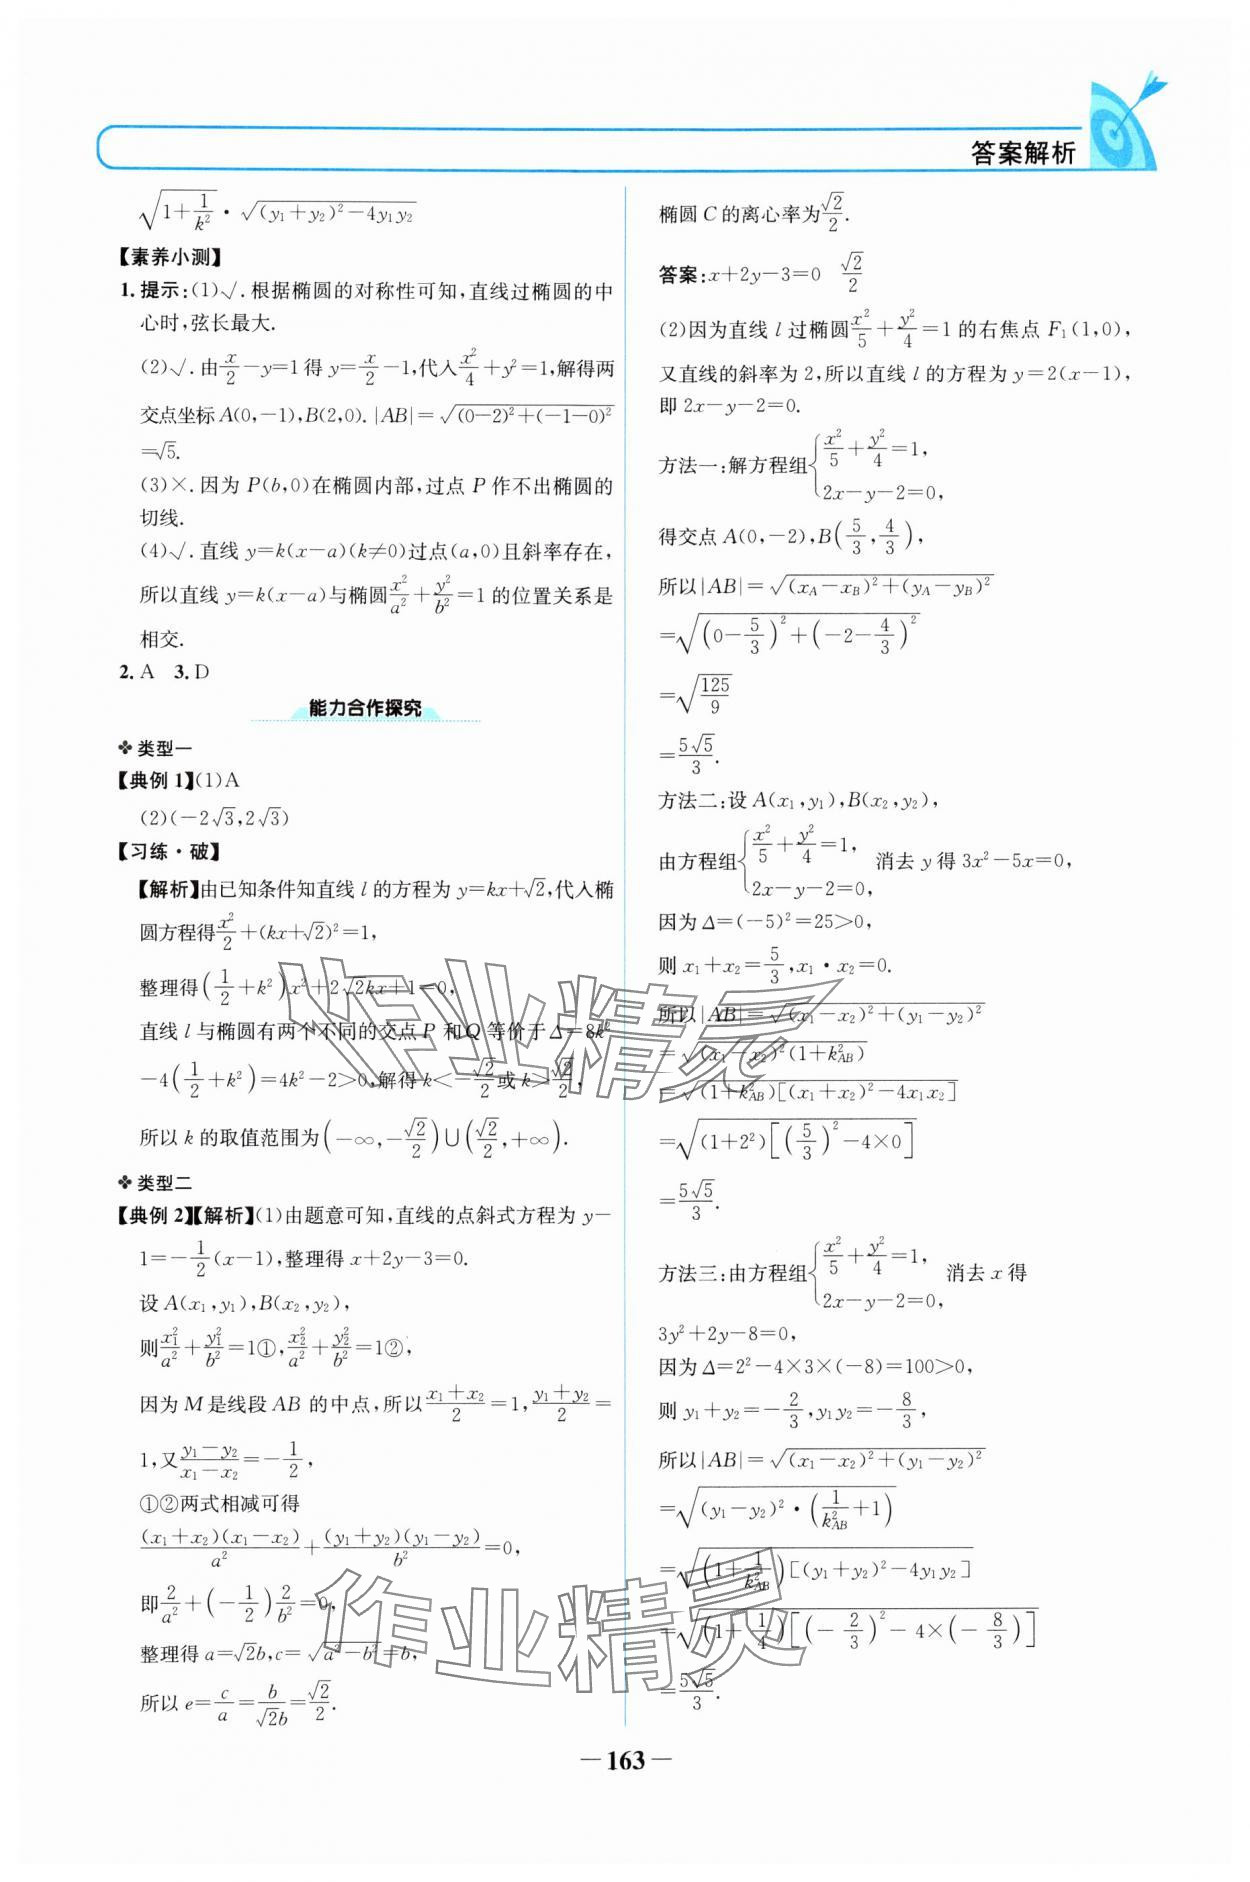 答案解析
√(1+1/k²)·√((y₁+y₂)²-4y₁y₂)
【素养小测】
1.提示:(1)√.根据椭圆的对称性可知,直线过椭圆的中
心时,弦长最大.
(2)√.由x/2-y=1得y=x/2-1,代入x²/4+y²=1,解得两
交点坐标A(0,-1),B(2,0).|AB|=√((0-2)²+(-1-0)²)
=√5.
(3)×.因为P(b,0)在椭圆内部,过点P作不出椭圆的
切线.
(4)√.直线y=k(x-a)(k≠0)过点(a,0)且斜率存在,
所以直线y=k(x-a)与椭圆x²/a²+y²/b²=1的位置关系是
相交.
2. A 3. D
能力合作探究
❖类型一
【典例1】(1)A
(2)(-2√3,2√3)
【习练·破】
【解析】由已知条件知直线l的方程为y=kx+√2,代入椭
圆方程得x²/2+(kx+√2)²=1,
整理得(1/2+k²)x²+2√2kx+1=0,
直线l与椭圆有两个不同的交点P和Q等价于Δ=8k²
-4(1/2+k²)=4k²-2>0,解得k<-√2/2或k>√2/2,
所以k的取值范围为(-∞,-√2/2)∪(√2/2,+∞).
❖类型二
【典例2】【解析】(1)由题意可知,直线的点斜式方程为y-
1=-1/2(x-1),整理得x+2y-3=0.
设A(x₁,y₁),B(x₂,y₂),
则x₁²/a²+y₁²/b²=1①,x₂²/a²+y₂²/b²=1②,
因为M是线段AB的中点,所以(x₁+x₂)/2=1,(y₁+y₂)/2=
1,又(y₁-y₂)/(x₁-x₂)=-1/2,
①②两式相减可得
(x₁+x₂)(x₁-x₂)/a²+(y₁+y₂)(y₁-y₂)/b²=0,
即2/a²+(-1/2)2/b²=0,
整理得a=√2b,c=√(a²-b²)=b,
所以e=c/a=b/(√2b)=√2/2.
椭圆C的离心率为√2/2.
答案:x+2y-3=0 √2/2
(2)因为直线l过椭圆x²/5+y²/4=1的右焦点F₁(1,0),
又直线的斜率为2,所以直线l的方程为y=2(x-1),
即2x-y-2=0.
方法一:解方程组{x²/5+y²/4=1,
2x-y-2=0,
得交点A(0,-2),B(5/3,4/3),
所以|AB|=√((x_A-x_B)²+(y_A-y_B)²)
=√((0-5/3)²+(-2-4/3)²)
=√(125/9)
=5√5/3.
方法二:设A(x₁,y₁),B(x₂,y₂),
由方程组{x²/5+y²/4=1,
2x-y-2=0, 消去y得3x²-5x=0,
因为Δ=(-5)²=25>0,
则x₁+x₂=5/3,x₁·x₂=0.
所以|AB|=√((x₁-x₂)²+(y₁-y₂)²)
=√((x₁-x₂)²(1+k²_AB))
=√((1+k²_AB)[(x₁+x₂)²-4x₁x₂])
=√((1+2²)[(5/3)²-4×0])
=5√5/3.
方法三:由方程组{x²/5+y²/4=1,
2x-y-2=0, 消去x得
3y²+2y-8=0,
因为Δ=2²-4×3×(-8)=100>0,
则y₁+y₂=-2/3,y₁y₂=-8/3,
所以|AB|=√((x₁-x₂)²+(y₁-y₂)²)
=√((y₁-y₂)²·(1/k²_AB+1))
=√((1+1/k²_AB)[(y₁+y₂)²-4y₁y₂])
=√((1+1/4)[(-2/3)²-4×(-8/3)])
=5√5/3.
作业精灵
作业精灵
— 163 —